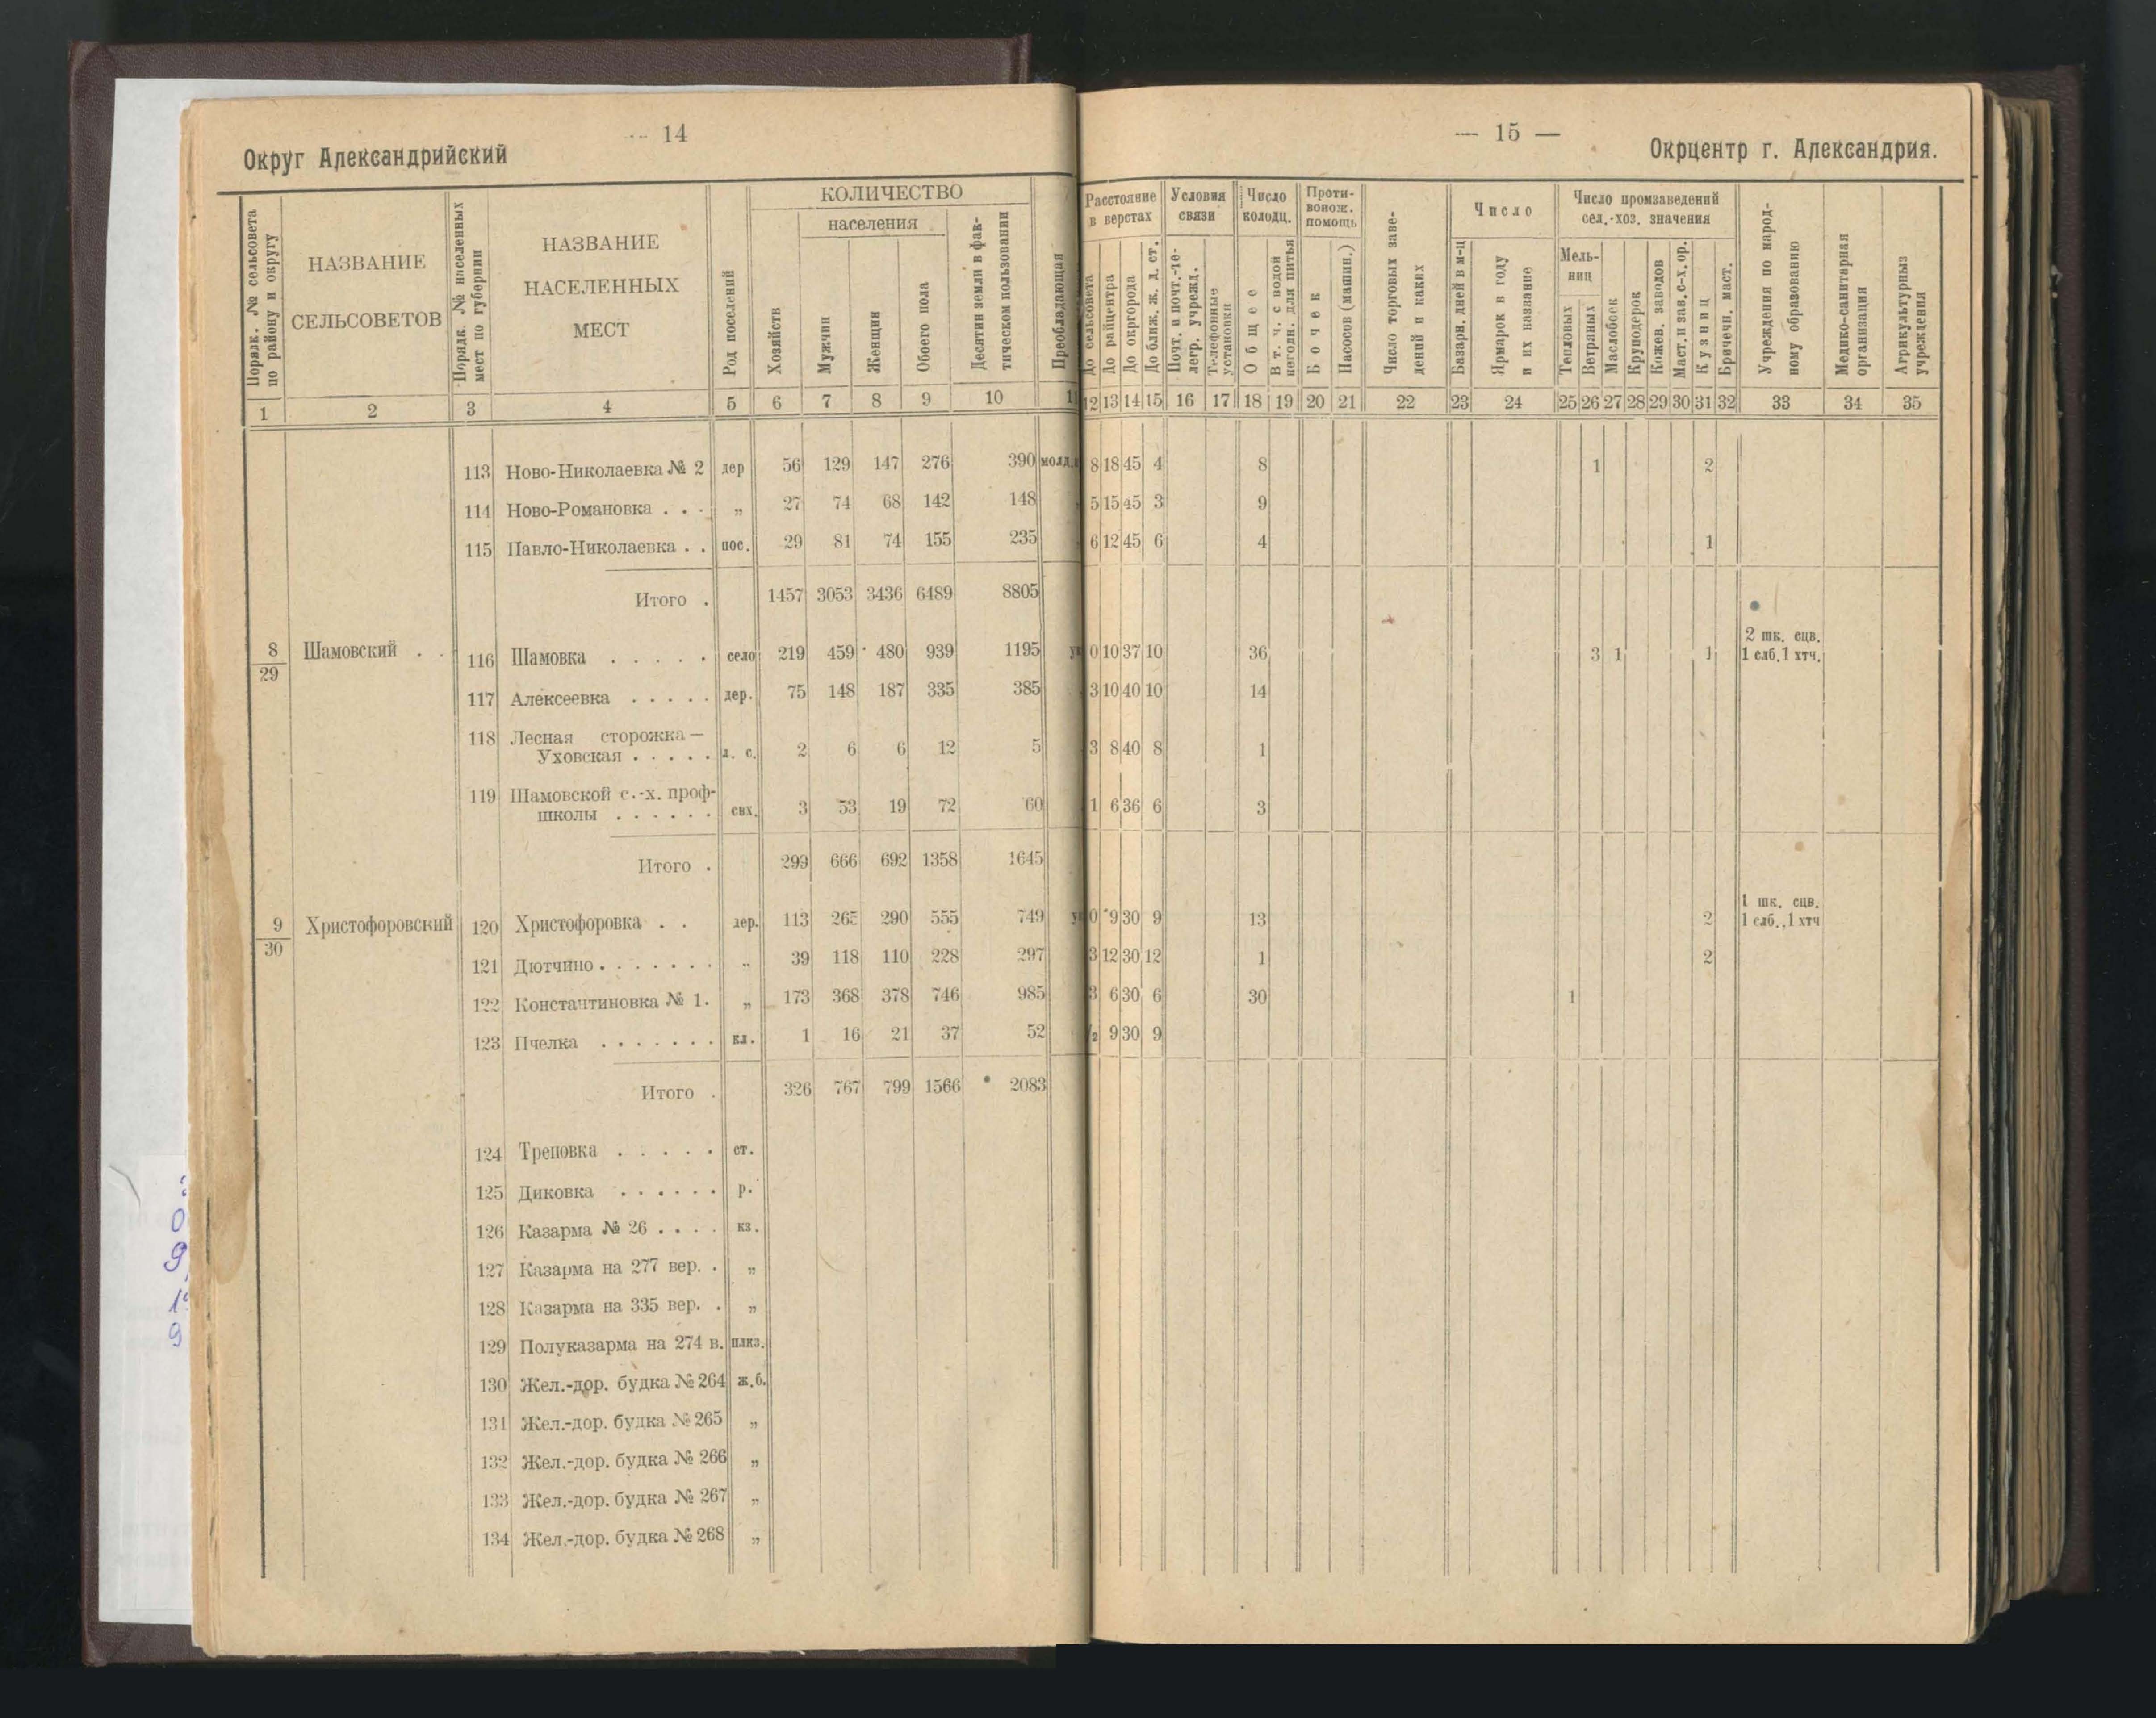 — 14
Округ Александрийский
Порядк. № сельсовета по району и округу
НАЗВАНИЕ СЕЛЬСОВЕТОВ
Порядк. № населенных мест по губернии
НАЗВАНИЕ НАСЕЛЕННЫХ МЕСТ
Род поселений
КОЛИЧЕСТВО
Хозяйств
населения
Мужчин
Женщин
Обоего пола
Десятин земли в фактическом пользовании
Преобладающая
1 2 3 4 5 6 7 8 9 10 11
113 Ново-Николаевка № 2 дер 56 129 147 276 390 молд.
114 Ново-Романовка . . . „ 27 74 68 142 148
115 Павло-Николаевка . . пос. 29 81 74 155 235
Итого . 1457 3053 3436 6489 8805
8/29 Шамовский . . 116 Шамовка . . . . . село 219 459 480 939 1195
117 Алексеевка . . . . . дер. 75 148 187 335 385
118 Лесная сторожка—
Уховская . . . . . л. с. 2 6 6 12 5
119 Шамовской с.-х. проф-
школы . . . . . . свх. 3 53 19 72 60
Итого . 299 666 692 1358 1645
9/30 Христофоровский 120 Христофоровка . . дер. 113 265 290 555 749
121 Дютчино . . . . . . . „ 39 118 110 228 297
122 Константиновка № 1. „ 173 368 378 746 985
123 Пчелка . . . . . . . кл. 1 16 21 37 52
Итого . 326 767 799 1566 2083
124 Треповка . . . . . ст.
125 Диковка . . . . . . р.
126 Казарма № 26 . . . . кз.
127 Казарма на 277 вер. . „
128 Казарма на 335 вер. . „
129 Полуказарма на 274 в. плкз.
130 Жел.-дор. будка № 264 ж.б.
131 Жел.-дор. будка № 265 „
132 Жел.-дор. будка № 266 „
133 Жел.-дор. будка № 267 „
134 Жел.-дор. будка № 268 „
— 15 —
Окрцентр г. Александрия.
Расстояние в верстах
До сельсовета
До райцентра
До окргорода
До ближ. ж. д. ст.
Условия связи
Почт. и почт.-телегр. учрежд.
Телефонные установки
Число колодц.
Общее
В т. ч. с водой негодн. для питья
Противопож. помощь
Бочек
Насосов (машин.)
Число торговых заведений и каких
Число
Базарн. дней в м-ц
Ярмарок в году и их название
Число промзаведений сел.-хоз. значения
Мельниц
Тепловых
Ветряных
Маслобоек
Круподерок
Кожев. заводов
Маст. и зав. с-х. ор.
Кузниц
Бричечн. маст.
Учреждения по народному образованию
Медико-санитарная организация
Агрикультурные учреждения
12 13 14 15 16 17 18 19 20 21 22 23 24 25 26 27 28 29 30 31 32 33 34 35
8 18 45 4 8 1 2
5 15 45 3 9
6 12 45 6 4 1
0 10 37 10 36 3 1 1 2 шк. сцв.
1 слб. 1 хтч.
3 10 40 10 14
3 8 40 8 1
1 6 36 6 3
0 9 30 9 13 2 1 шк. сцв.
1 слб., 1 хтч
3 12 30 12 1 2
3 6 30 6 30 1
9 30 9